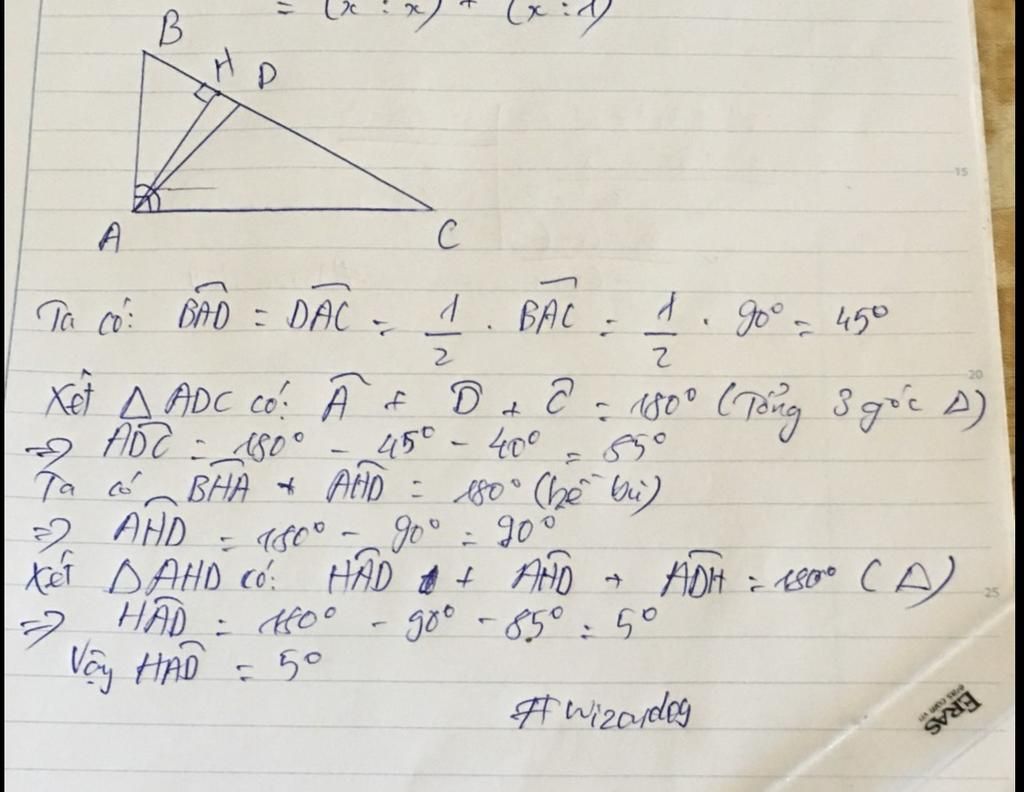 = (x : x) + (x : 1)
B
H D
A
C
Ta có: BAD = DAC = 1/2 . BAC = 1/2 . 90° = 45°
Xét Δ ADC có: A + D + C = 180° (Tổng 3 góc Δ)
=> ADC = 180° - 45° - 40° = 85°
Ta có BHA + AHD = 180° (kề bù)
=> AHD = 180° - 90° = 90°
Xét ΔAHD có: HAD + AHD + ADH = 180° (Δ)
=> HAD = 180° - 90° - 85° = 5°
Vậy HAD = 5°
#wizardog
ERAS
15
20
25